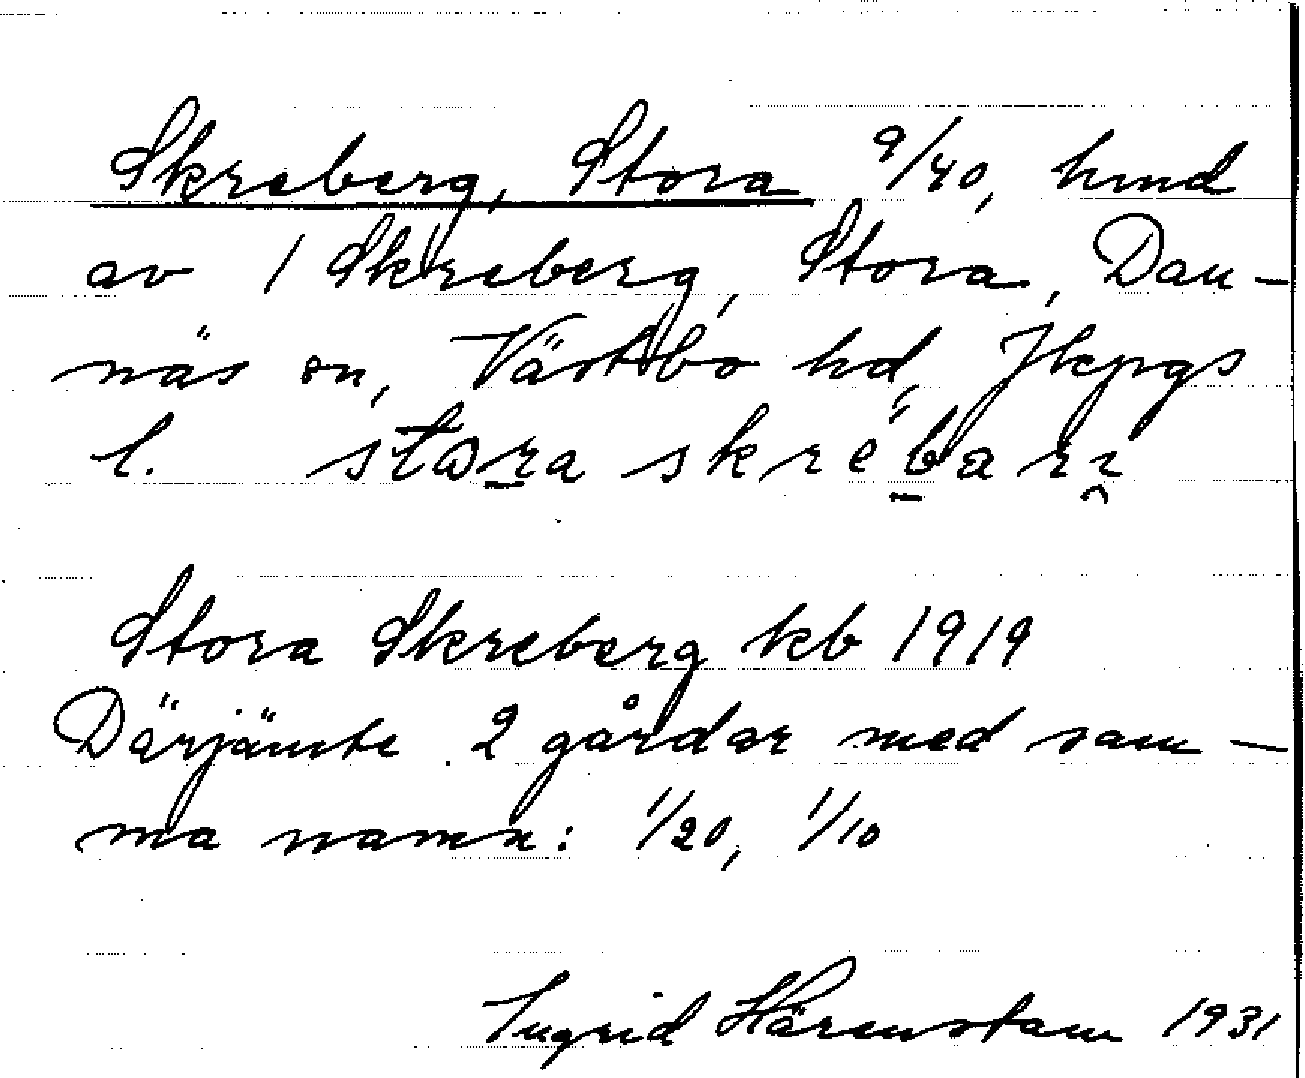 Skreberg, Stora 9/40, hmd
av 1 Skreberg, Stora, Dan-
näs sn, Västbo hd, Jkpgs
l. stora skrebari
Stora Skreberg kb 1919
Därjämte 2 gårdar med sam-
ma namn: 1/20, 1/10
Ingrid Härenstam 1931